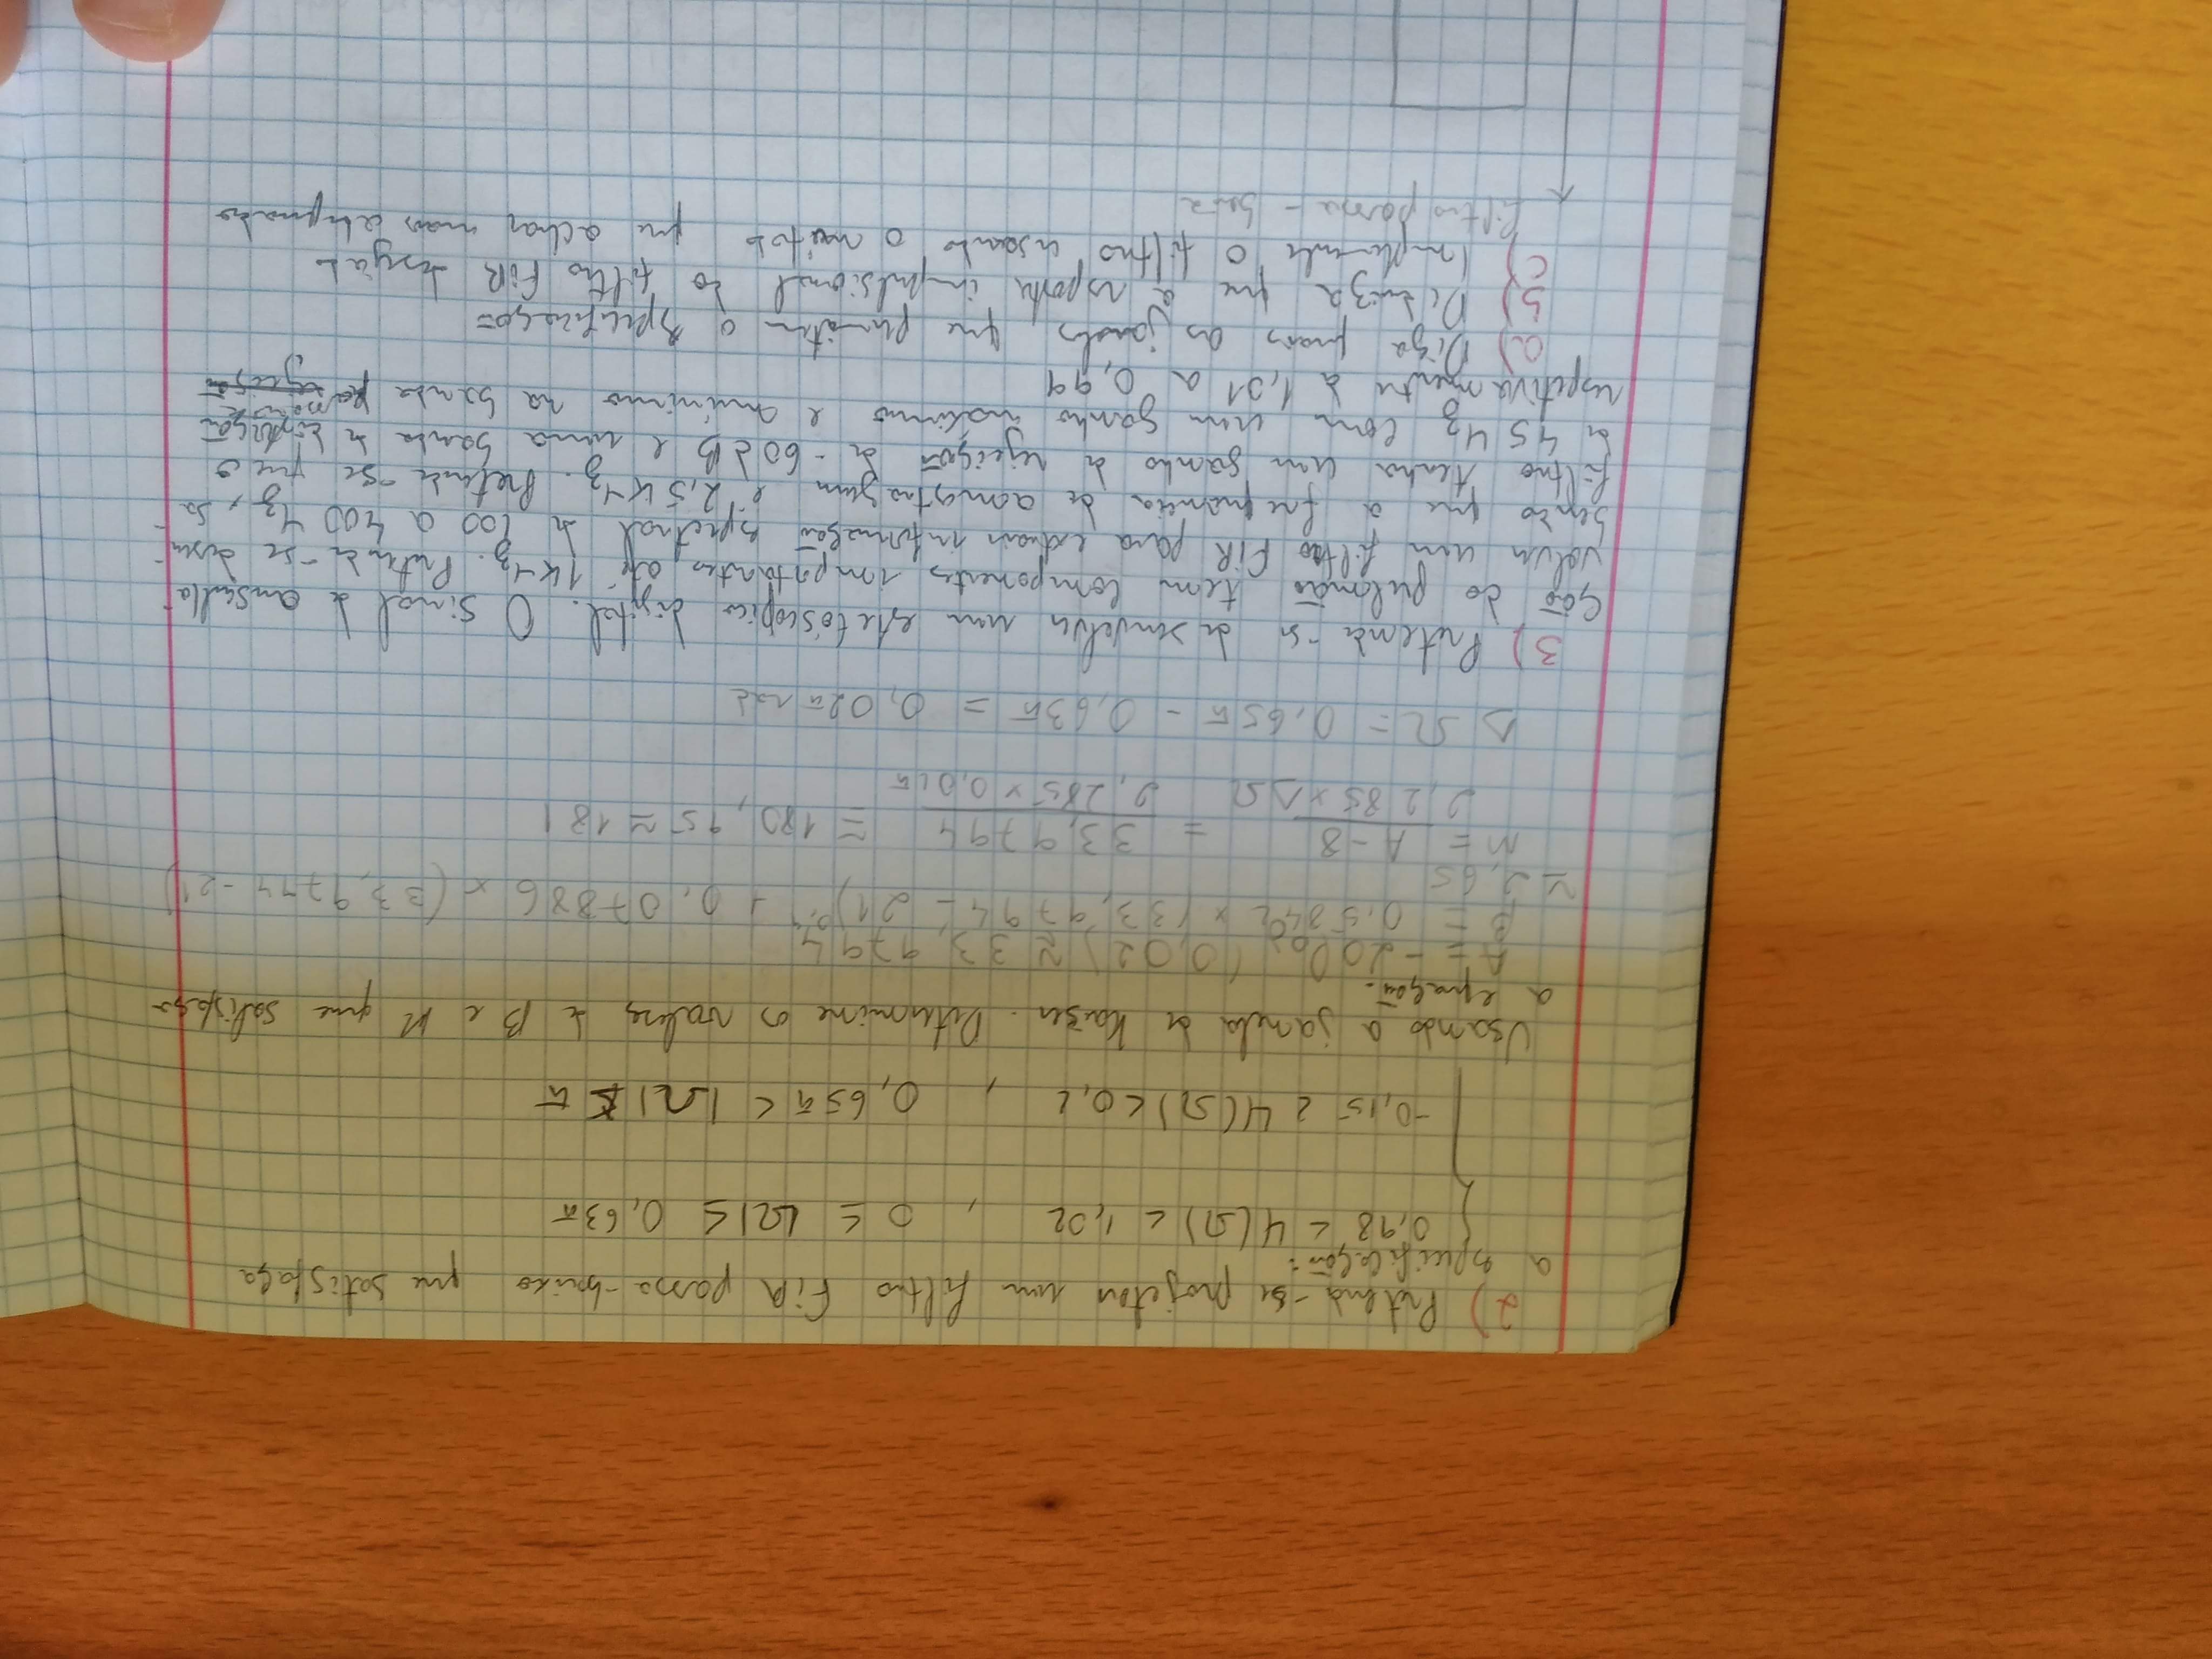 2) Pretende-se projetar um filtro FIR passa-baixo que satisfaça
a especificação:
0,98 < H(Ω) < 1,02 , 0 ≤ |Ω| ≤ 0,63π
-0,15 < H(Ω) < 0,2 , 0,65π < |Ω| ≤ π
Usando a janela de Kaiser. Determine os valores de B e M que satisfaça
a equação:
A = -20 log (0,02) ≈ 33,9794
B = 0,5842 × (33,9794 - 21)^0,4 + 0,07886 × (33,9794 - 21)
≈ 2,65
M = A-8 / 2,285×ΔΩ = 33,9794 / 2,285×0,02π = 180,95 ≈ 181
ΔΩ = 0,65π - 0,63π = 0,02π rad
3) Pretende-se desenvolver um estetoscópico digital. O sinal de ausculta-
ção do pulmão tem componentes importantes até 1KHz. Pretende-se desen-
volver um filtro FIR para extrair informação espectral de 100 a 400 Hz, sa-
bendo que a frequência de amostragem é 2,5 KHz. Pretende-se que o
filtro tenha um ganho de rejeição de -60dB e uma banda de transição
de 45 Hz com um ganho máximo e mínimo na banda passante
respetivamente a 1,01 a 0,99
a) Diga quais as janelas que permitem a especificação
b) Deduza que a resposta impulsional do filtro FIR desejado
c) Implemente o filtro usando o método que achar mais adequado
Filtro passa-banda